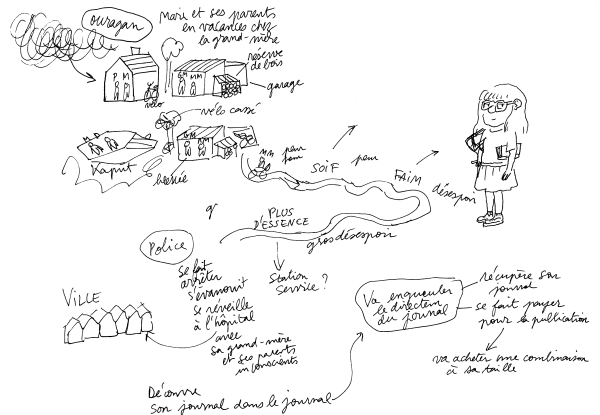 ouragan
Marie et ses parents
en vacances chez
la grand-mère
réserve
de bois
P M
GM MM
garage
vélo
vélo cassé
M P
GM
Kaput
blessée
MM
peur
faim
SOIF
peur
FAIM
désespoir
PLUS
D'ESSENCE
gros désespoir
Station
Service ?
Police
se fait
arrêter
s'évanouit
se réveille
à l'hôpital
avec
sa grand-mère
et ses parents
inconscients
VILLE
Va engueuler
le directeur
du journal
récupère son
journal
se fait payer
pour la publication
va acheter une combinaison
à sa taille
Découvre
son journal dans le journal